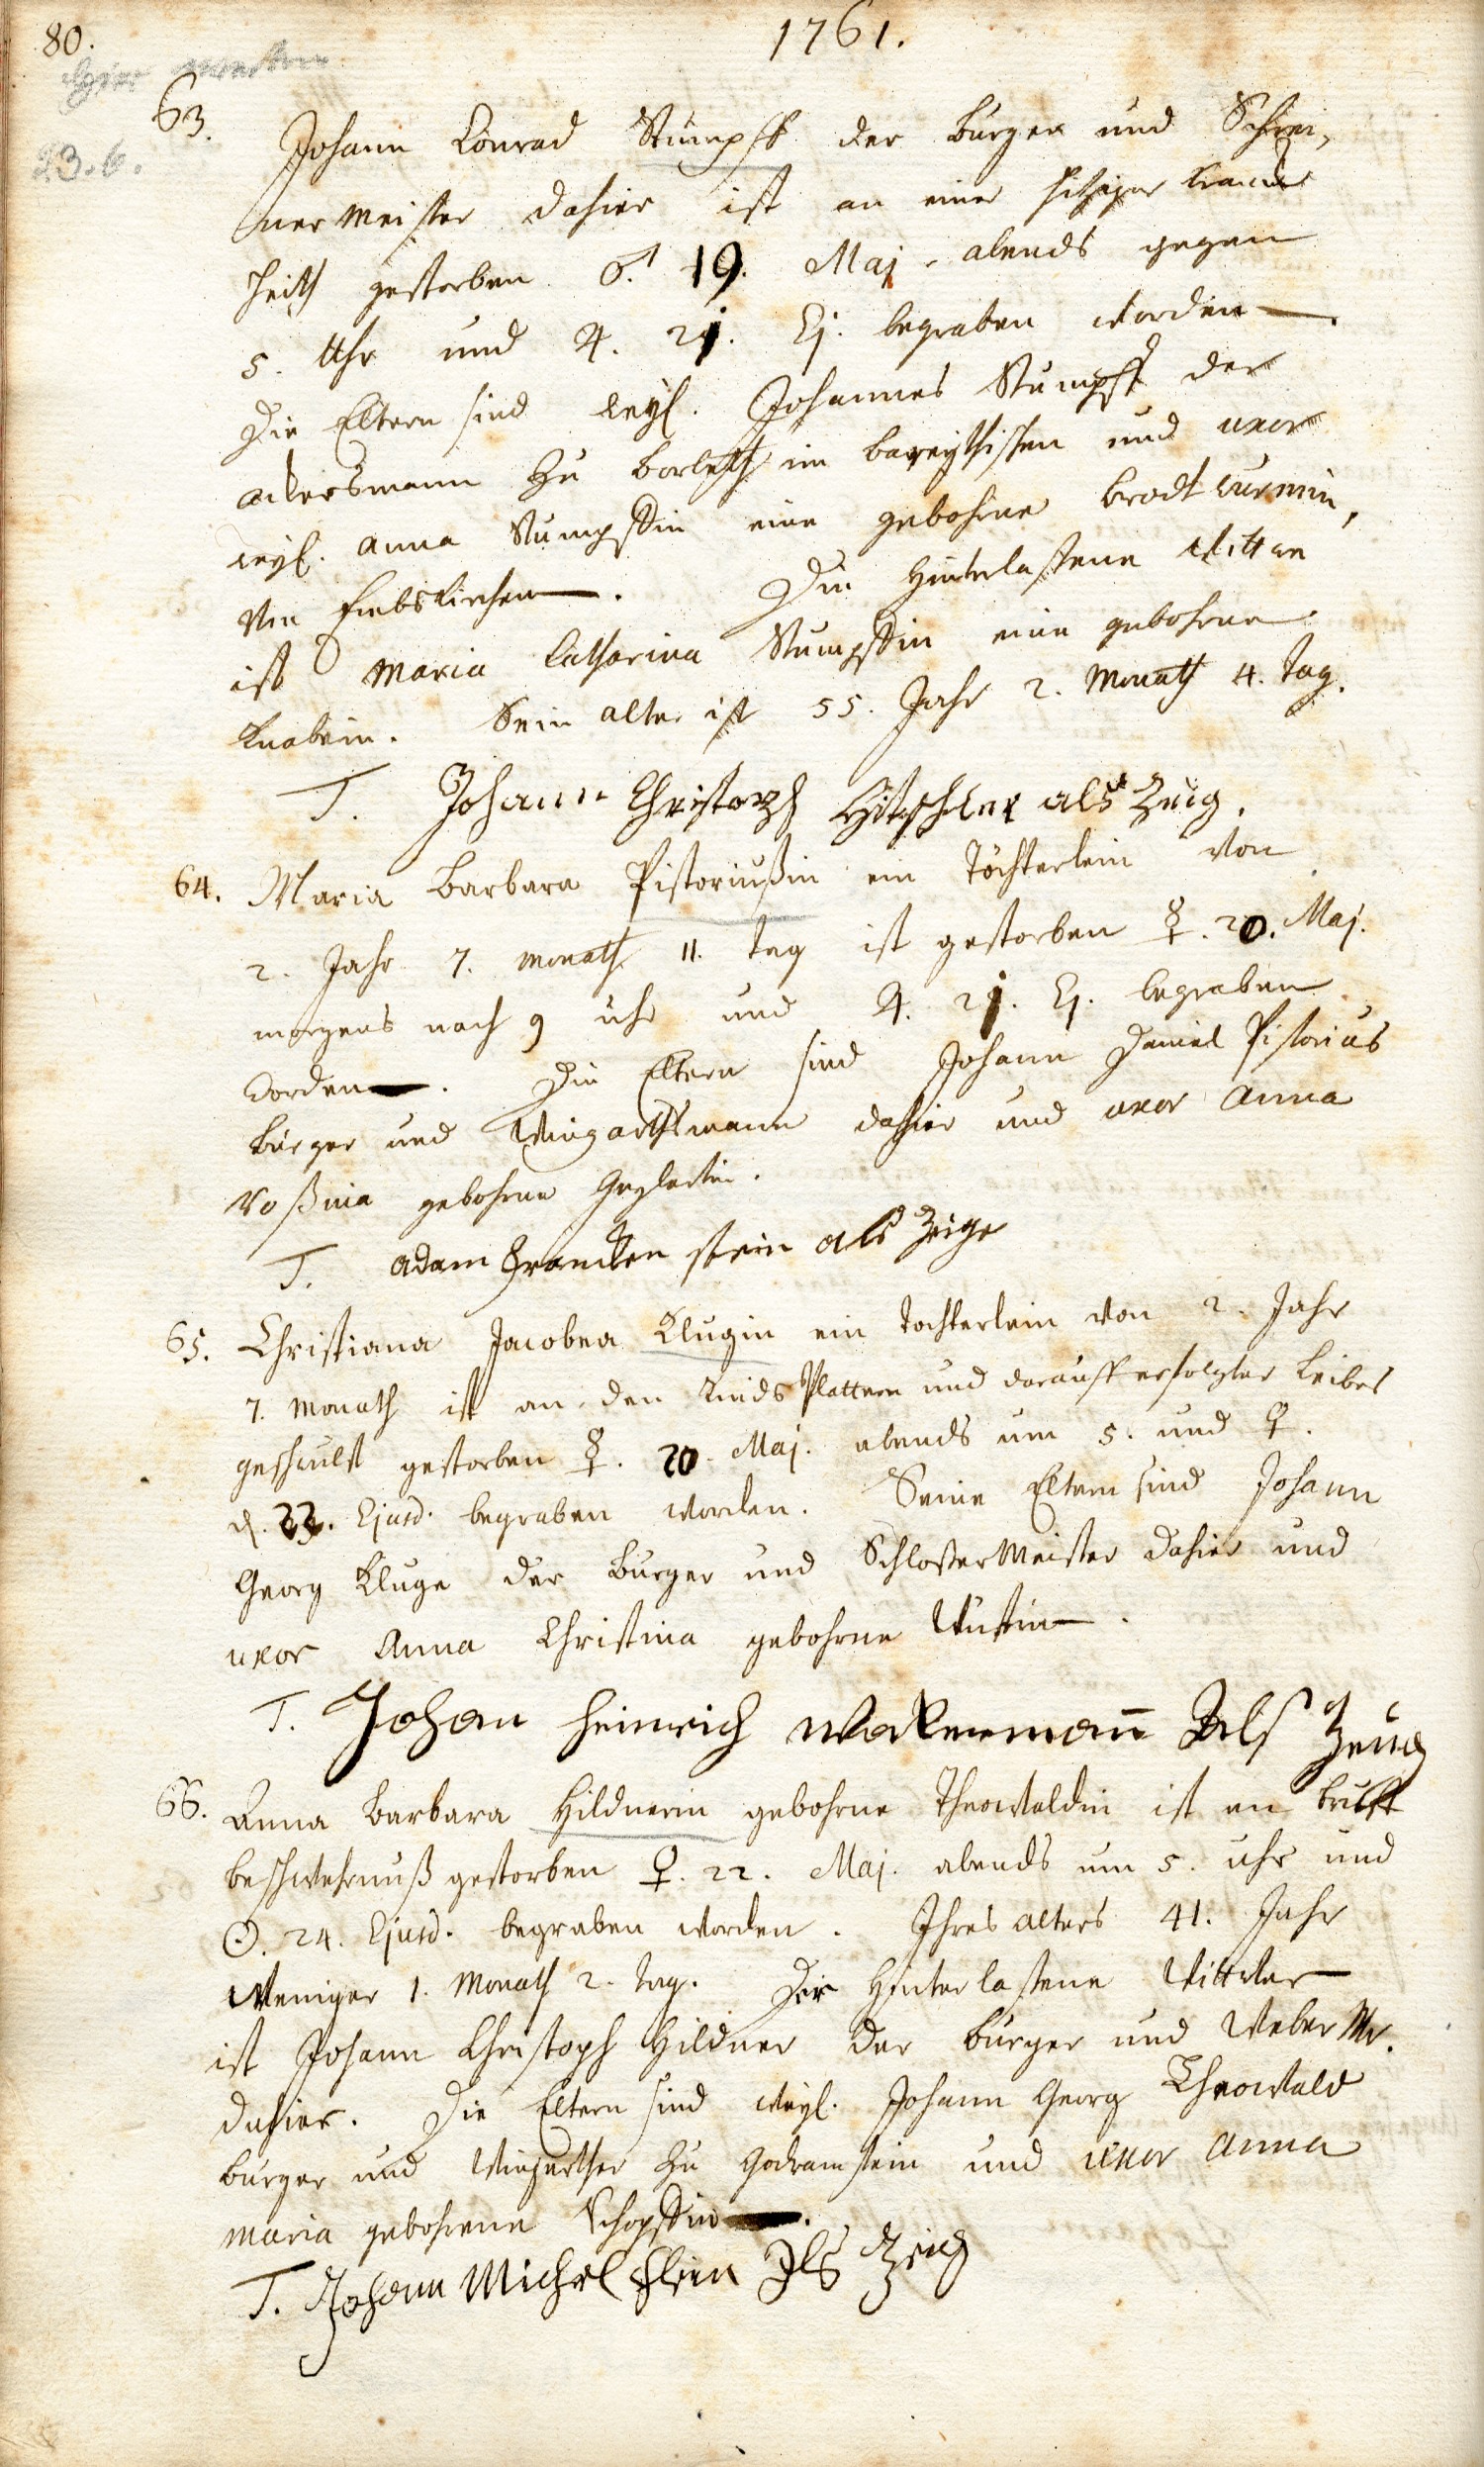 80.
1761.
63.
23.6.
Johann Conrad Stumpff der Burger und Schrei,
ner Meister dahier ist an einer hitzigen Kranck
heith gestorben ♂. 19. Maj. abends gegen
5. Uhr und ♃. 21. Ej. begraben worden.
Die Eltern sind weyl. Johannes Stumpff der
ackersmann zu im Bareythischen und uxor
weyl. Anna Stumpffin eine gebohrne Brodtwurmin,
von. Die hinterlassene Wittwe
ist Maria Catharina Stumpffin eine gebohrne
Knabein. Sein alter ist 55. Jahr 2. Monath 4. Tag.
T. Johann Christoph als Zeig.
64. Maria Barbara Pistoriußin ein Töchterlein von
2. Jahr 7. Monath 11. Tag ist gestorben ☿. 20. Maj.
morgens nach 9 uhr und ♃. 21. Ej. begraben
worden. Die Eltern sind Johann Daniel Pistorius
Burger und Wingarthsmann dahier und uxor Anna
Roßina gebohrne.
T. Adam Francken stein als Zeige
65. Christiana Jacobea Klugin ein Tochterlein von 2. Jahr
7. Monath ist an den Kinds Plattern und darauff erfolgter Leibes
geschwulst gestorben ☿. 20. Maj. abends um 5. und ♀.
d. 22. Ejusd. begraben worden. Seine Eltern sind Johann
Georg Kluge der Burger und Schlosser Meister dahier und
uxor Anna Christina gebohrne Wüstin.
T. Johan Heinrich Wakermann Als Zeug
66. Anna Barbara Hildnerin gebohrne Theowaldin ist an Brust
beschwehrnuß gestorben ♀. 22. Maj. abends um 5. uhr und
☉. 24. Ejusd. begraben worden. Ihres alters 41. Jahr
Weniger 1. Monath 2. Tag. Der Hinterlassene Wittwer
ist Johann Christoph Hildner der Burger und Weber Mr.
dahier. Die Eltern sind weyl. Johann Georg Theowald
Burger und Wingerther zu Godramstein und uxor Anna
Maria gebohrene Schopffin.
T. Johann Michel Klein Als Zeug